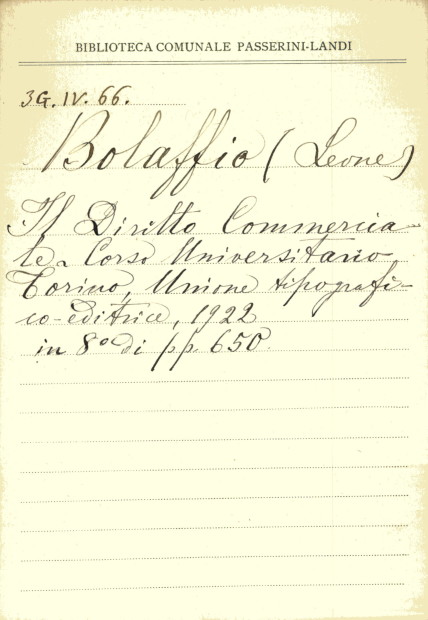 BIBLIOTECA COMUNALE PASSERINI-LANDI
3G. IV. 66.
Bolaffio (Leone)
Il Diritto Commercia-
le - Corso Universitario
Torino, Unione tipografi-
co-editrice, 1922
in 8° di pp. 650